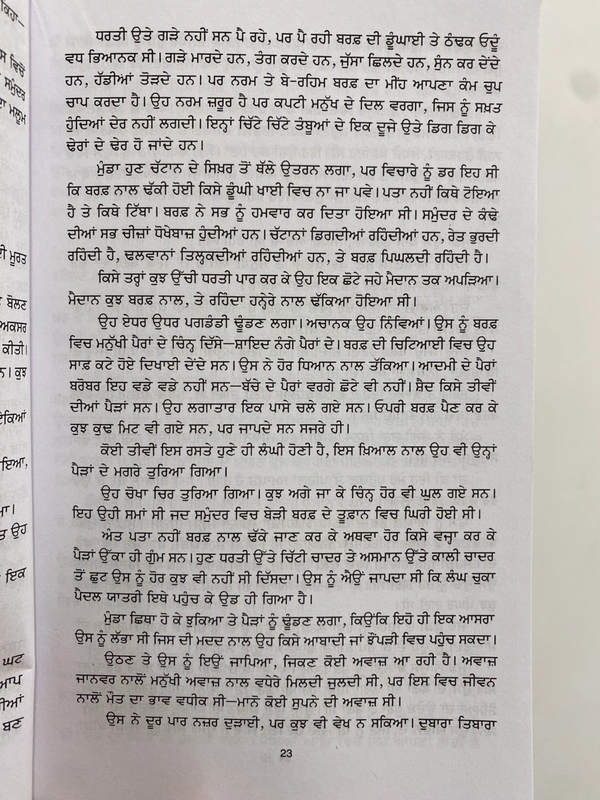 ਧਰਤੀ ਉਤੇ ਗੜੇ ਨਹੀਂ ਸਨ ਪੈ ਰਹੇ, ਪਰ ਪੈ ਰਹੀ ਬਰਫ਼ ਦੀ ਡੂੰਘਾਈ ਤੇ ਠੰਢਕ ਓਦੂੰ
ਵਧ ਭਿਆਨਕ ਸੀ। ਗੜੇ ਮਾਰਦੇ ਹਨ, ਤੰਗ ਕਰਦੇ ਹਨ, ਜੁੱਸਾ ਛਿਲਦੇ ਹਨ, ਸੁੰਨ ਕਰ ਦੇਂਦੇ
ਹਨ, ਹੱਡੀਆਂ ਤੋੜਦੇ ਹਨ। ਪਰ ਨਰਮ ਤੇ ਬੇ-ਰਹਿਮ ਬਰਫ਼ ਦਾ ਮੀਂਹ ਆਪਣਾ ਕੰਮ ਚੁਪ
ਚਾਪ ਕਰਦਾ ਹੈ। ਉਹ ਨਰਮ ਜ਼ਰੂਰ ਹੈ ਪਰ ਕਪਟੀ ਮਨੁੱਖ ਦੇ ਦਿਲ ਵਰਗਾ, ਜਿਸ ਨੂੰ ਸਖ਼ਤ
ਹੁੰਦਿਆਂ ਦੇਰ ਨਹੀਂ ਲਗਦੀ। ਇਨ੍ਹਾਂ ਚਿੱਟੇ ਚਿੱਟੇ ਤੰਬੂਆਂ ਦੇ ਇਕ ਦੂਜੇ ਉਤੇ ਡਿਗ ਡਿਗ ਕੇ
ਢੇਰਾਂ ਦੇ ਢੇਰ ਹੋ ਜਾਂਦੇ ਹਨ।
ਮੁੰਡਾ ਹੁਣ ਚੱਟਾਨ ਦੇ ਸਿਖ਼ਰ ਤੋਂ ਥੱਲੇ ਉਤਰਨ ਲਗਾ, ਪਰ ਵਿਚਾਰੇ ਨੂੰ ਡਰ ਇਹ ਸੀ
ਕਿ ਬਰਫ਼ ਨਾਲ ਢੱਕੀ ਹੋਈ ਕਿਸੇ ਡੂੰਘੀ ਖਾਈ ਵਿਚ ਨਾ ਜਾ ਪਵੇ। ਪਤਾ ਨਹੀਂ ਕਿਥੇ ਟੋਇਆ
ਹੈ ਤੇ ਕਿਥੇ ਟਿੱਬਾ। ਬਰਫ਼ ਨੇ ਸਭ ਨੂੰ ਹਮਵਾਰ ਕਰ ਦਿਤਾ ਹੋਇਆ ਸੀ। ਸਮੁੰਦਰ ਦੇ ਕੰਢੇ
ਦੀਆਂ ਸਭ ਚੀਜ਼ਾਂ ਧੋਖੇਬਾਜ਼ ਹੁੰਦੀਆਂ ਹਨ। ਚੱਟਾਨਾਂ ਡਿਗਦੀਆਂ ਰਹਿੰਦੀਆਂ ਹਨ, ਰੇਤ ਭੁਰਦੀ
ਰਹਿੰਦੀ ਹੈ, ਢਲਵਾਨਾਂ ਤਿਲ੍ਹਕਦੀਆਂ ਰਹਿੰਦੀਆਂ ਹਨ, ਤੇ ਬਰਫ਼ ਪਿਘਲਦੀ ਰਹਿੰਦੀ ਹੈ।
ਕਿਸੇ ਤਰ੍ਹਾਂ ਕੁਝ ਉੱਚੀ ਧਰਤੀ ਪਾਰ ਕਰ ਕੇ ਉਹ ਇਕ ਛੋਟੇ ਜਹੇ ਮੈਦਾਨ ਤਕ ਅਪੜਿਆ।
ਮੈਦਾਨ ਕੁਝ ਬਰਫ਼ ਨਾਲ, ਤੇ ਰਹਿੰਦਾ ਹਨ੍ਹੇਰੇ ਨਾਲ ਢੱਕਿਆ ਹੋਇਆ ਸੀ।
ਉਹ ਏਧਰ ਉਧਰ ਪਗਡੰਡੀ ਢੂੰਡਣ ਲਗਾ। ਅਚਾਨਕ ਉਹ ਨਿੰਵਿਆਂ। ਉਸ ਨੂੰ ਬਰਫ਼
ਵਿਚ ਮਨੁੱਖੀ ਪੈਰਾਂ ਦੇ ਚਿੰਨ੍ਹ ਦਿੱਸੇ—ਸ਼ਾਇਦ ਨੰਗੇ ਪੈਰਾਂ ਦੇ। ਬਰਫ਼ ਦੀ ਚਿਟਿਆਈ ਵਿਚ ਉਹ
ਸਾਫ਼ ਕਟੇ ਹੋਏ ਦਿਖਾਈ ਦੇਂਦੇ ਸਨ। ਉਸ ਨੇ ਹੋਰ ਧਿਆਨ ਨਾਲ ਤੱਕਿਆ। ਆਦਮੀ ਦੇ ਪੈਰਾਂ
ਬਰੋਬਰ ਇਹ ਵਡੇ ਵਡੇ ਨਹੀਂ ਸਨ—ਬੱਚੇ ਦੇ ਪੈਰਾਂ ਵਰਗੇ ਛੋਟੇ ਵੀ ਨਹੀਂ। ਸ਼ੈਦ ਕਿਸੇ ਤੀਵੀਂ
ਦੀਆਂ ਪੈੜਾਂ ਸਨ। ਉਹ ਲਗਾਤਾਰ ਇਕ ਪਾਸੇ ਚਲੇ ਗਏ ਸਨ। ਓਪਰੀ ਬਰਫ਼ ਪੈਣ ਕਰ ਕੇ
ਕੁਝ ਕੁਢ ਮਿਟ ਵੀ ਗਏ ਸਨ, ਪਰ ਜਾਪਦੇ ਸਨ ਸਜਰੇ ਹੀ।
ਕੋਈ ਤੀਵੀਂ ਇਸ ਰਸਤੇ ਹੁਣੇ ਹੀ ਲੰਘੀ ਹੋਣੀ ਹੈ, ਇਸ ਖ਼ਿਆਲ ਨਾਲ ਉਹ ਵੀ ਉਨ੍ਹਾਂ
ਪੈੜਾਂ ਦੇ ਮਗਰੇ ਤੁਰਿਆ ਗਿਆ।
ਉਹ ਚੋਖਾ ਚਿਰ ਤੁਰਿਆ ਗਿਆ। ਕੁਝ ਅਗੇ ਜਾ ਕੇ ਚਿੰਨ੍ਹ ਹੋਰ ਵੀ ਘੁਲ ਗਏ ਸਨ।
ਇਹ ਉਹੀ ਸਮਾਂ ਸੀ ਜਦ ਸਮੁੰਦਰ ਵਿਚ ਬੇੜੀ ਬਰਫ਼ ਦੇ ਤੂਫ਼ਾਨ ਵਿਚ ਘਿਰੀ ਹੋਈ ਸੀ।
ਅੰਤ ਪਤਾ ਨਹੀਂ ਬਰਫ਼ ਨਾਲ ਢੱਕੇ ਜਾਣ ਕਰ ਕੇ ਅਥਵਾ ਹੋਰ ਕਿਸੇ ਵਜ੍ਹਾ ਕਰ ਕੇ
ਪੈੜਾਂ ਉੱਕਾ ਹੀ ਗੁੰਮ ਸਨ। ਹੁਣ ਧਰਤੀ ਉੱਤੇ ਚਿੱਟੀ ਚਾਦਰ ਤੇ ਅਸਮਾਨ ਉੱਤੇ ਕਾਲੀ ਚਾਦਰ
ਤੋਂ ਛੁਟ ਉਸ ਨੂੰ ਹੋਰ ਕੁਝ ਵੀ ਨਹੀਂ ਸੀ ਦਿੱਸਦਾ। ਉਸ ਨੂੰ ਐਉਂ ਜਾਪਦਾ ਸੀ ਕਿ ਲੰਘ ਚੁਕਾ
ਪੈਦਲ ਯਾਤਰੀ ਇਥੇ ਪਹੁੰਚ ਕੇ ਉਡ ਹੀ ਗਿਆ ਹੈ।
ਮੁੰਡਾ ਛਿਥਾ ਹੋ ਕੇ ਝੁਕਿਆ ਤੇ ਪੈੜਾਂ ਨੂੰ ਢੂੰਡਣ ਲਗਾ, ਕਿਉਂਕਿ ਇਹੋ ਹੀ ਇਕ ਆਸਰਾ
ਉਸ ਨੂੰ ਲੱਭਾ ਸੀ ਜਿਸ ਦੀ ਮਦਦ ਨਾਲ ਉਹ ਕਿਸੇ ਆਬਾਦੀ ਜਾਂ ਝੌਂਪੜੀ ਵਿਚ ਪਹੁੰਚ ਸਕਦਾ।
ਉਠਣ ਤੇ ਉਸ ਨੂੰ ਇਉਂ ਜਾਪਿਆ, ਜਿਕਣ ਕੋਈ ਅਵਾਜ਼ ਆ ਰਹੀ ਹੈ। ਅਵਾਜ਼
ਜਾਨਵਰ ਨਾਲੋਂ ਮਨੁੱਖੀ ਅਵਾਜ਼ ਨਾਲ ਵਧੇਰੇ ਮਿਲਦੀ ਜੁਲਦੀ ਸੀ, ਪਰ ਇਸ ਵਿਚ ਜੀਵਨ
ਨਾਲੋਂ ਮੌਤ ਦਾ ਭਾਵ ਵਧੀਕ ਸੀ—ਮਾਨੋ ਕੋਈ ਸੁਪਨੇ ਦੀ ਅਵਾਜ਼ ਸੀ।
ਉਸ ਨੇ ਦੂਰ ਪਾਰ ਨਜ਼ਰ ਦੁੜਾਈ, ਪਰ ਕੁਝ ਵੀ ਵੇਖ ਨ ਸਕਿਆ। ਦੁਬਾਰਾ ਤਿਬਾਰਾ
23